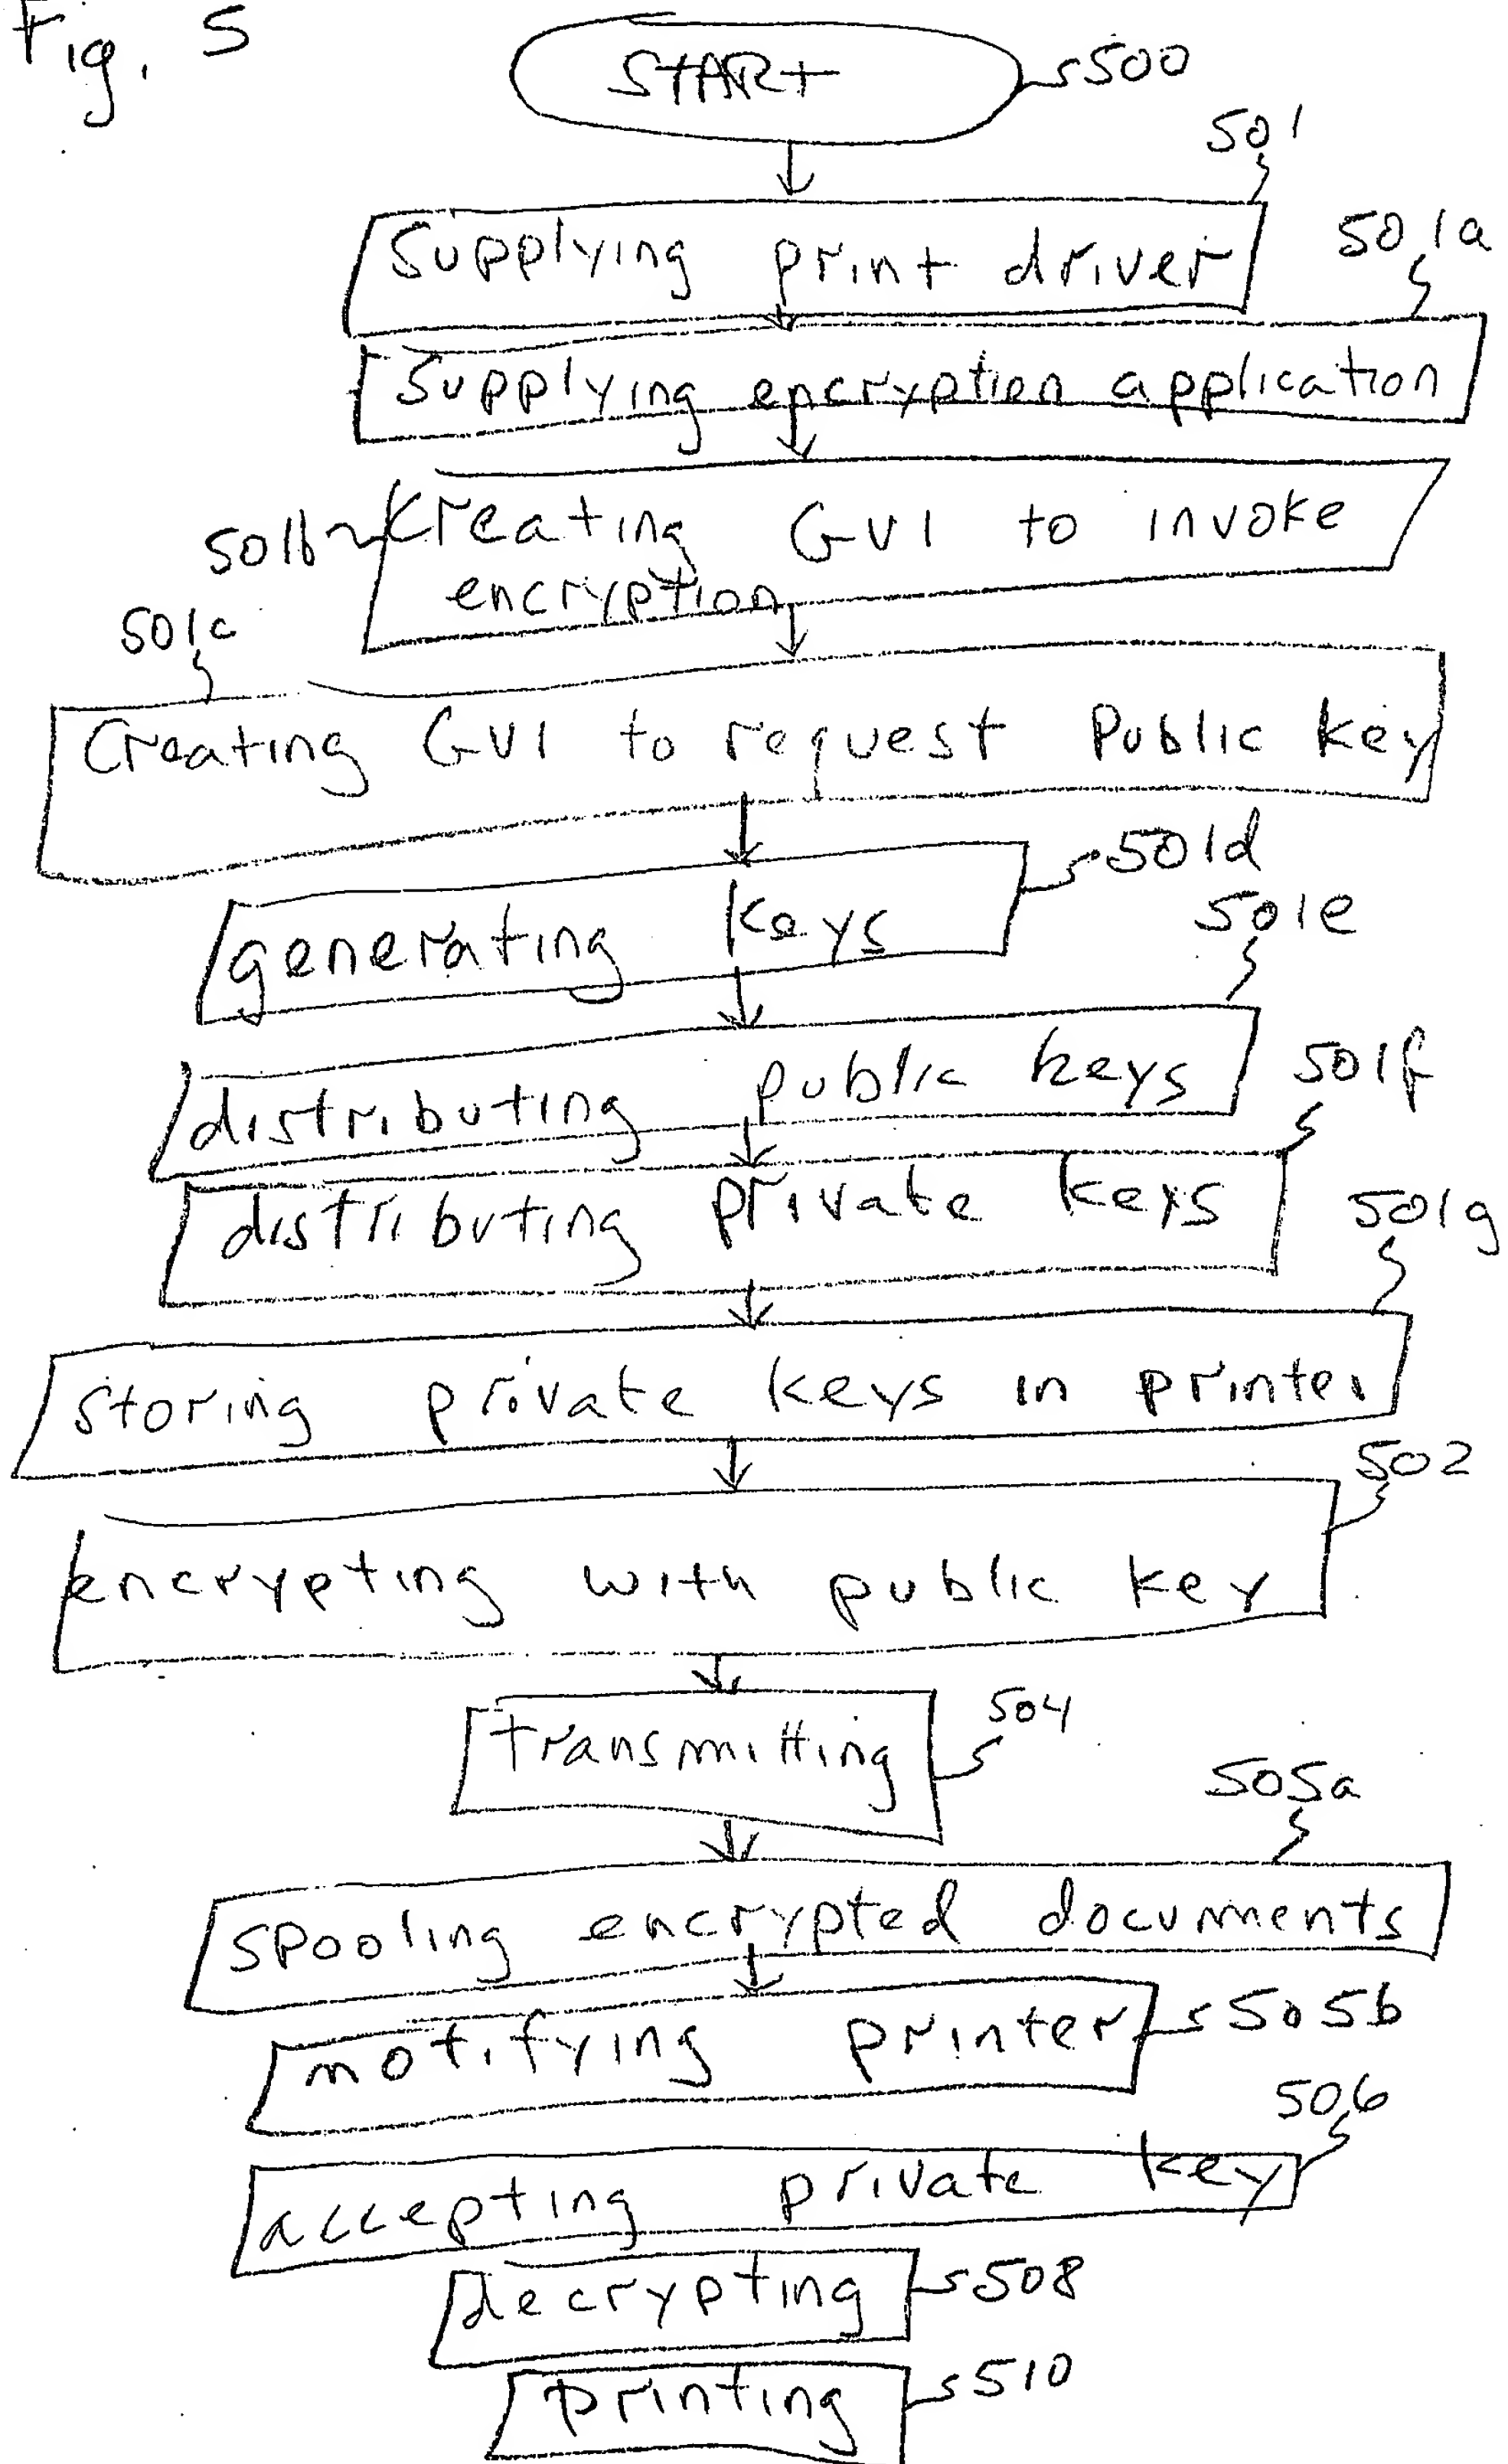 Fig. 5
START
500
501
Supplying print driver
501a
Supplying encryption application
501b
Creating GUI to invoke
encryption
501c
Creating GUI to request Public key
501d
generating keys
501e
distributing public keys
501f
distributing private keys
501g
storing private keys in printer
502
encrypting with public key
transmitting
504
505a
spooling encrypted documents
notifying printer
505b
506
accepting private key
decrypting
508
printing
510